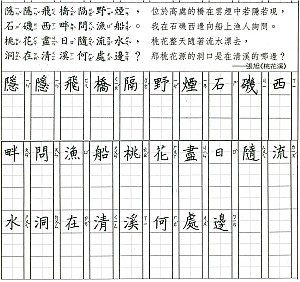 隱隱飛橋隔野煙，
石磯西畔問漁船。
桃花盡日隨流水，
洞在清溪何處邊？
位於高處的橋在雲煙中若隱若現，
我在石磯西邊向船上漁人詢問。
桃花整天隨著流水漂去，
那桃花源的洞口是在清溪的哪邊？
──張旭《桃花溪》
隱隱飛橋隔野煙石磯西
畔問漁船桃花盡日隨流
水洞在清溪何處邊